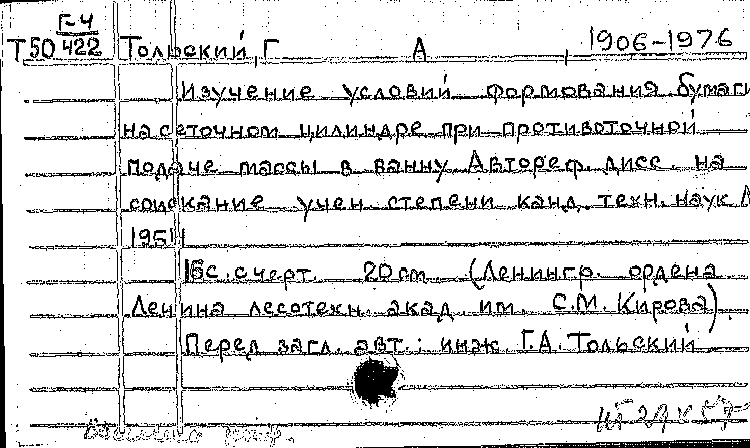 Г-4
Т50 422 Тольский, Г А , 1906-1976
Изучение условий формования бумаги
на сеточном цилиндре при противоточной
подаче массы в ванну Автореф. дисс. на
соискание учен степени канд. техн. наук Л
1951
16с. с черт. 20 cm (Ленингр. ордена
Ленина лесотехн. акад им. С.М. Кирова).
Перед загл. авт.: инж Г.А. Тольский